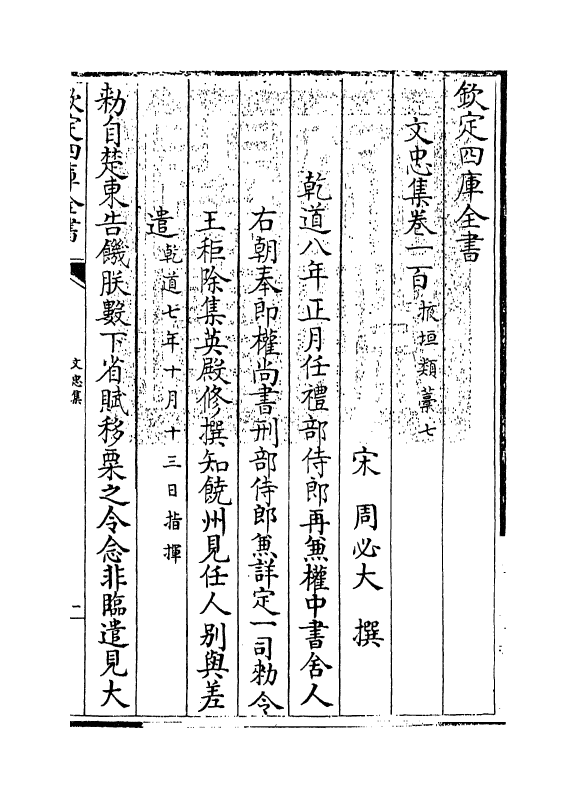 欽定四庫全書
文忠集卷一百 掖垣類藁七
宋 周必大 撰
乾道八年正月任禮部侍郎再兼權中書舍人
右朝奉郎權尚書刑部侍郎兼詳定一司勑令
王秬除集英殿修撰知饒州見任人别與差
遣 乾道七年十月十三日指揮
勑自楚東告饑朕數下省賦移粟之令念非臨遣見大
欽定四庫全書
文忠集
一